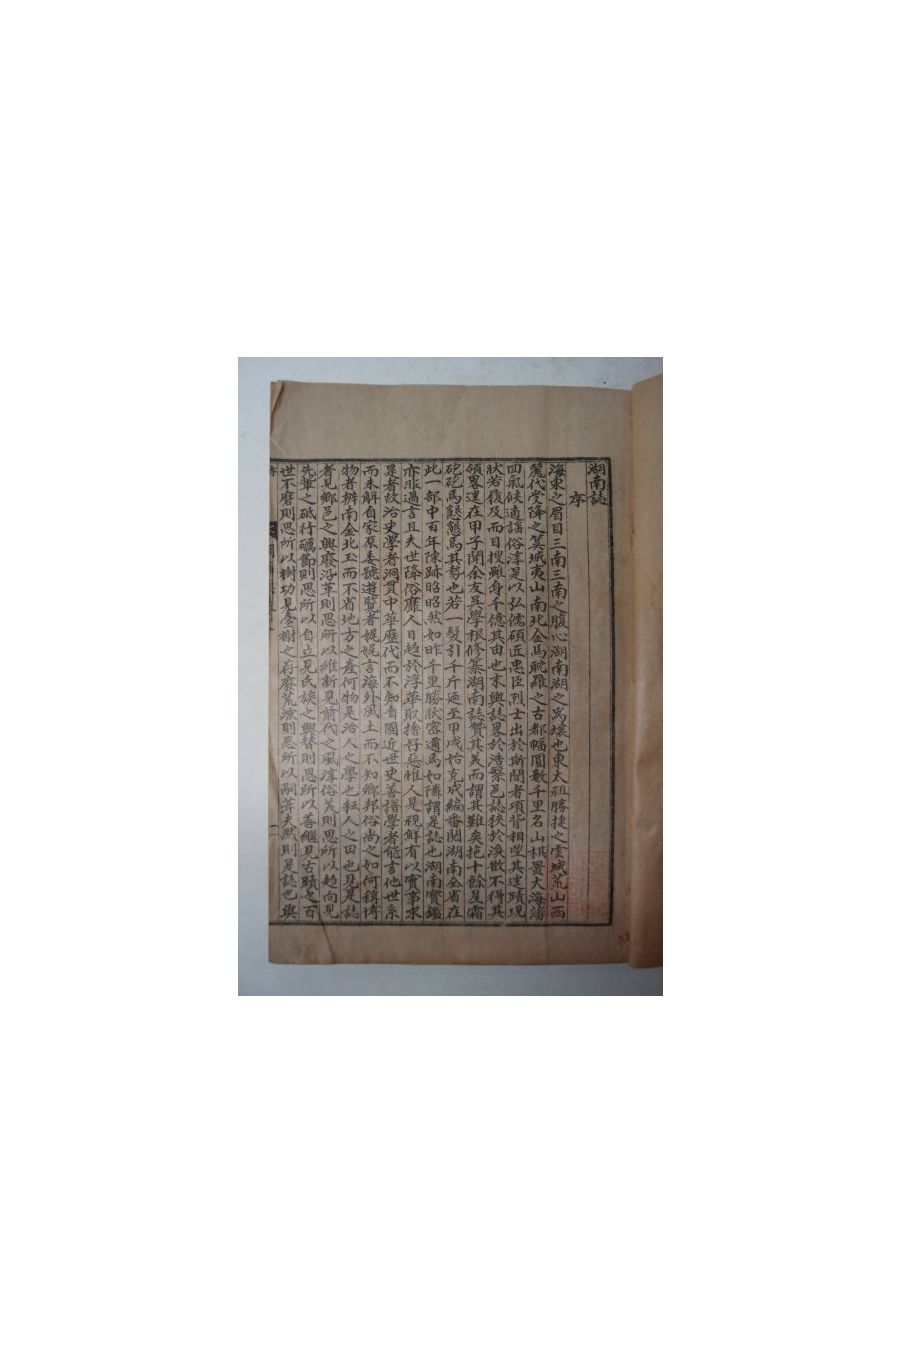 湖南誌
序
海東之眉目三南三南之腹心湖南湖之爲壤也東太祖勝捷之雲城荒山西
麗代受降之箕城夷山南北金馬耽羅之古都幅圓數千里名山棋置大海
回氣候適謠俗淳是以弘儒碩匠忠臣烈士出於斯閭者項背相望其迹蹟現
狀若履及而目搜雖身千億其由也末輿誌畧於浩繫邑誌狹於渙散不得其
領畧運在甲子閒余友吳學根修纂湖南誌贊其義而謂其難矣拖十餘星霜
矻矻焉懇懇焉其勢也若一髮引千斤迤至甲戌始克成編番閱湖南全省在
此一部中百年陳跡昭昭然如昨千里勝狀密邇焉如隣謂是誌也湖南寶鑑
亦非過言且夫世降俗靡人日趍於浮華取捨好惡惟人是視鮮有以實事求
是者故治史學者洞貫中華歷代而不知自國近世史善譜學者能言他世系
而未解自家原委號遊覽者娓娓言海外風土而不知鄉邦俗尚之如何稱博
物者辨南金北玉而不省地方之產何物是治人之學也耘人之田也見是誌
者見鄉邑之興廢沿革則思所以維新見前代之風淳俗美則思所以趍向見
先輩之砥行礪節則思所以自立見氏族之興替則思所以善繼見古蹟之百
世不磨則思所以樹功見臺榭之存廢荒凉則思所以嗣葺夫然則是誌也與